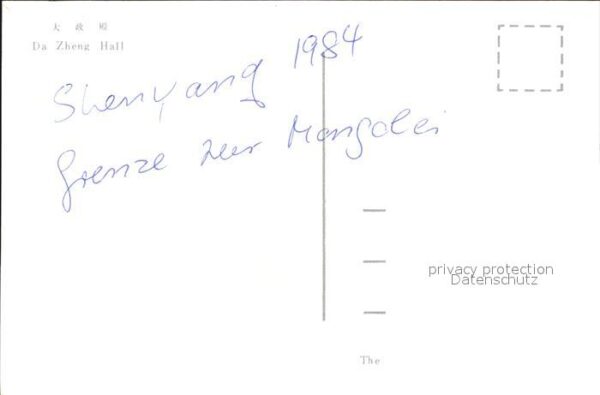 大政殿
Da Zheng Hall
Shenyang 1984
Grenze zur Mongolei
privacy protection
Datenschutz
The